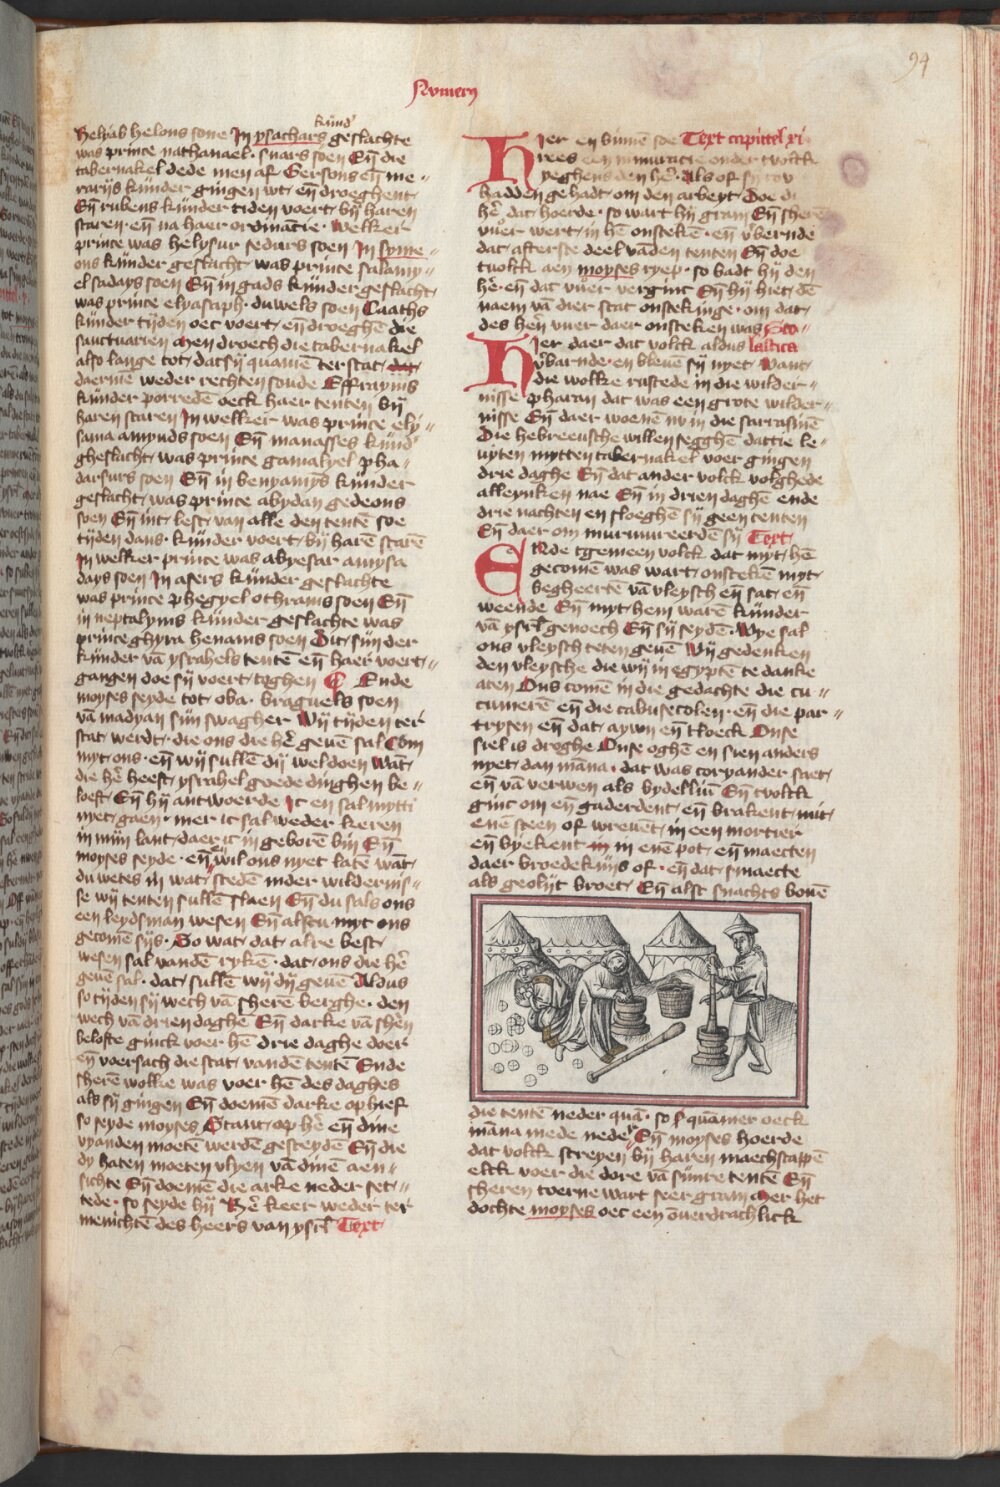 94
Numery
kund'
Helyab helons sone In ysachars geslachte
was prince nathanael · snars soen Eñ die
tabernakel dede men af Gersons eñ me„
rarijs künder gingen wt · eñ droeghent
Eñ rubens künder tiden voert · bij haren
staren · eñ na haer ordinatie · Welker
prince was helysur sedurs soen In syme„
ons künder geslacht · was prince salamy„
el sadays soen Eñ in gads künder geslacht ·
was prince elyasaph · duwels soen Caaths
künder tijden oec voert · eñ droeghē die
sanctuarien Men droech die tabernakel
also lange tot · dat sij quamē ter stat · dat
daermē weder rechten soude Effrayms
künder porredē oeck haer tenten bij
haren staren In welker was prince ely„
sama amyuds soen Eñ manasses künd'
gheslacht · was prince gamalyel pha„
darsurs soen Eñ in benyamijs künder
geslacht · was prince abydan gedeons
soen Eñ int · lest · van alle den tentē soe
tijden dans · künder voert · bij harē starē
In welker prince was abyesar amysa
days soen In asers künder geslachte
was prince phegyel othrams soen Eñ
in neptalyms künder geslachte was
prince ghyra henams soen Dit · sijn der
künder vā ysrahels tentē eñ haer voert„
gangen doe sij voert · toghen C Ende
moyses seyde tot · oba · braguels soen
vā madyan sijn swagher Wij tijden ter
stat · werdt · die ons die hē gevē sal Com
myt · ons · eñ wij sullē dij weldoen Wāt ·
die hē heeft · ysrahel goede dinghen be„
loeft · Eñ hij antwoerde Ic en sal mytti
nyet · gaen · mer ic sal weder keren
in mijn lant · daer ic in geborē bin Eñ
moyses seyde · eñ wil ons nyet latē wāt ·
du wetes in wat · stedēn inder wildernis„
se wij tenten sullē slaen Eñ du sals ons
een leydsman wesen Eñ alstu myt ons
gecomē sijs · So wat · dat alre best ·
wesen sal vandē rykē · dat · ons die hē
gevē sal · dat · sullē wij dij gevē Aldus
so tijden sij wech vā sherē berghe · den
wech vā drien daghē Eñ darke vā shēn
belofte ginck voer hē drie daghe doer
eñ voersach die stat · vandē tentē Ende
sherē wolke was voer hē des daghes
als sij gingen Eñ doemē darke ophief
so seyde moyses Stant · op hē eñ dine
vyanden moetē werdē gesteydē Eñ die
dij haten moeten vlyen vā dinē aen„
sichte Eñ doemē die arke neder set„
tede · so seyde hij Hē keer weder ter
menichtē des heers van ysrl Text
Hier en binnē soe Text capittel xi
rees een murmuracie onder tvolck
yeghens den hē · Als of sij rou
hadden gehadt · om den arbeyt · Doe di
hē dat · hoerde · so wart hij gram Eñ sherē
vuer wert · in hē onstekē · eñ vbernde
dat · afterste deel vāden tenten Eñ doe
tvolck aen moyses ryep · so badt hij den
hē · eñ dat vuer verginc Eñ hij hiet · dē
naem vā dier stat onstekinge · om dat ·
des hēn vuer daer onsteken was Sco„
Hier daer dat volck aldus lastica
vbarnde · en blevē sij nyet · Want ·
die wolke rustede in die wilder„
nisse pharan dat was een grote wilder„
nisse Eñ daer woenē nv in die sarrasinē
Die hebreeusche willen segghē dattie le„
uyten mytten tabernakel voer gingen
drie daghe Eñ dat ander volck volghede
alleynken nae Eñ in drien daghē ende
drie nachten en sloeghē sij geen tenten
Eñ daer om murmureerdē sij Text
Ende tgemeen volck dat myt · hē
gecomē was wart · onstekē myt ·
begheertē vā vleysch eñ sat · eñ
weende Eñ myt · hem warē künder
vā ysrl genoech Eñ sij seydē · Wye sal
ons vleysch teten gevē Wij gedenken
den vleysche die wij in egyptē te danke
aten Ons comē in die gedachte die cu„
cumerē eñ die cabusecolen · eñ die par„
trysen eñ dat · aywn eñ tloeck Onse
siel is droghe Onse oghē en sien anders
nyet · dan māna · dat was coryander saet ·
eñ vā verwen als bydelliū Eñ tvolck
ginc om eñ gaderdent · eñ brakent · mit ·
enē steen of wrevēt · in een mortier
eñ bijekent in enē pot · eñ maecten
daer broedekijs of · eñ dat · smaecte
als geolijt broet · Eñ alst snachts bovē
die tentē neder quā · so quāmer oeck
māna mede neder Eñ moyses hoerde
dat volck streyen bij haren maechstappē
elck voer die dore vā sijnre tentē Eñ
sheren toerne wart seer gram Mer het
dochte moyses oec een ōuerdrachlick